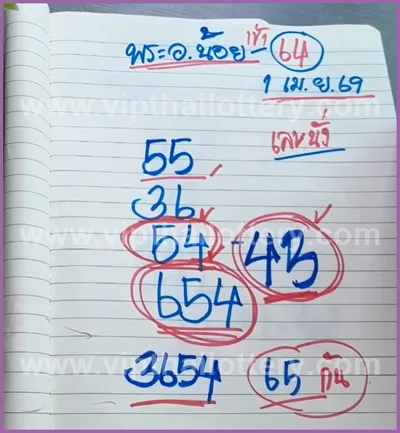 พระอ.น้อย เข้า 64
1 เม.ย.69
เลขนั่ง
55
36
64 - 43
654
3654 65 กัน
www.vipthailottery.com
www.vipthailottery.com
www.vipthailottery.com